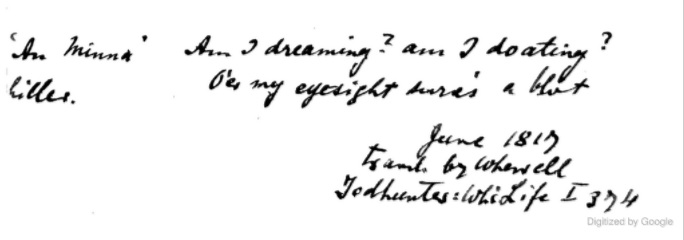 'An Minna' Am I dreaming? am I doating?
hiller. O'er my eyesight sure's a blot
June 1817
transl. by Whewell
Todhunter: Wh's Life I 374
Digitized by Google